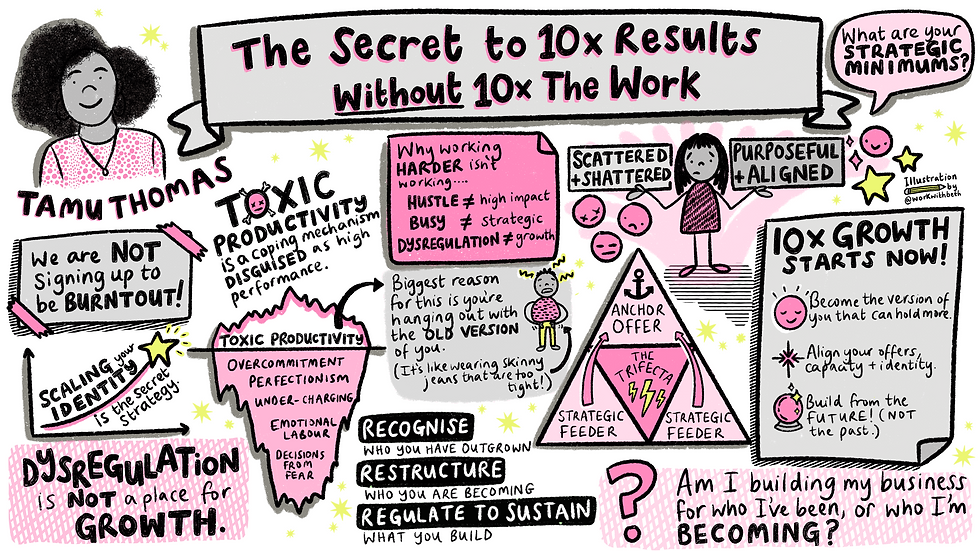 The Secret to 10x Results
Without 10x The Work
What are your
STRATEGIC
MINIMUMS?
TAMU THOMAS
TOXIC
PRODUCTIVITY
is a coping mechanism
DISGUISED as high
performance.
Why working
HARDER isn't
working....
HUSTLE ≠ high impact
BUSY ≠ strategic
DYSREGULATION ≠ growth
SCATTERED
+ SHATTERED
PURPOSEFUL
+ ALIGNED
Illustration
by
@workwithbeth
We are NOT
signing up to
be BURNTOUT!
SCALING your
IDENTITY
is the secret
strategy.
TOXIC PRODUCTIVITY
OVERCOMMITMENT
PERFECTIONISM
UNDER-CHARGING
EMOTIONAL
LABOUR
DECISIONS
FROM
FEAR
Biggest reason
for this is you're
hanging out with
the OLD VERSION
of you.
(It's like wearing skinny
jeans that are too
tight!)
ANCHOR
OFFER
THE
TRIFECTA
STRATEGIC
FEEDER
STRATEGIC
FEEDER
10X GROWTH
STARTS NOW!
Become the version of
you that can hold more.
Align your offers,
capacity + identity.
Build from the
FUTURE! (NOT
the past.)
DYSREGULATION
is NOT a place for
GROWTH.
RECOGNISE
WHO YOU HAVE OUTGROWN
RESTRUCTURE
WHO YOU ARE BECOMING
REGULATE TO SUSTAIN
WHAT YOU BUILD
?
Am I building my business
for who I've been, or who I'm
BECOMING?